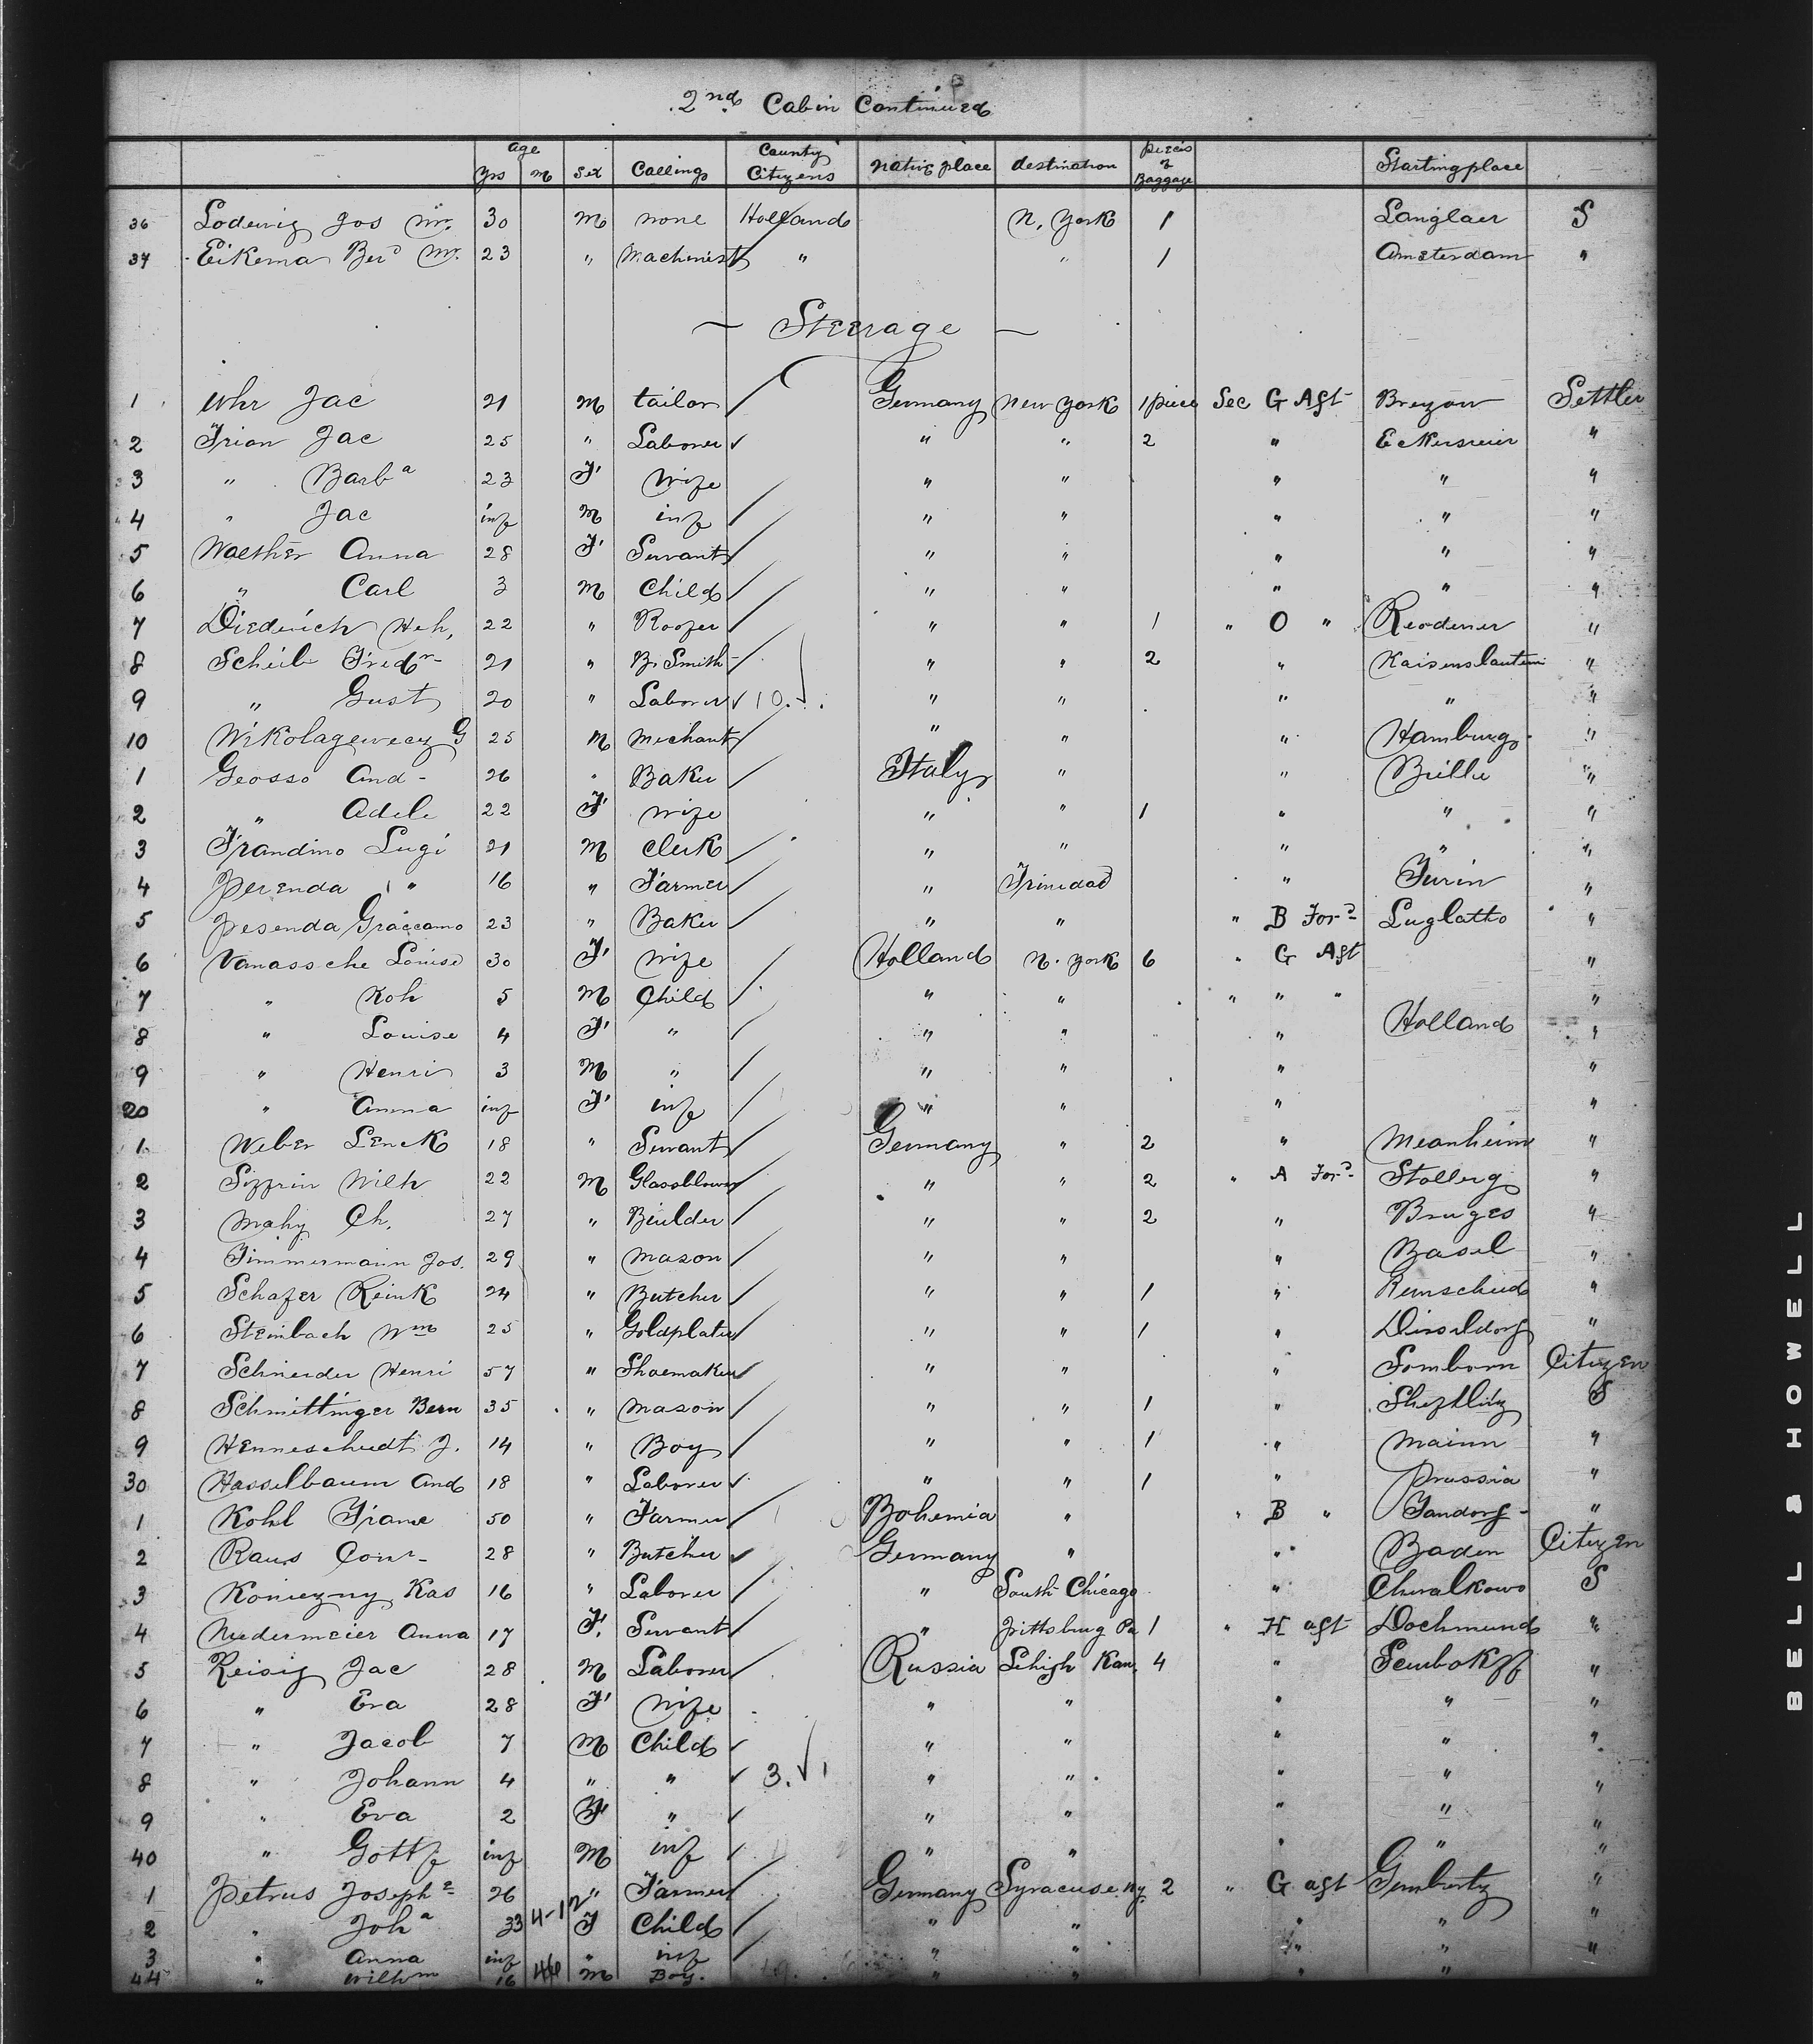 2nd Cabin Continued
age yrs m Sex Calling County Citizens native place destination pieces of Baggage Startingplace
36 Lodewig Jos mr. 30 m none Holland n. york 1 Langlaer S
37 Eikema Ber^d mr. 23 " Machinist " " 1 Amsterdam "
Steerage
1 Uhr Jac 21 m tailor Germany new york 1 piece Sec G Aft Settler
2 Irion Jac 25 " Laborer " " 2 " "
3 " Barb^a 23 F wife " " " " "
4 " Jac inf m inf " " " " "
5 Waether Anna 28 F Servant " " " " "
6 " Carl 3 m Child " " " " "
7 Diederich Heh, 22 " Roofer " " 1 " O " "
8 Scheib Fredr 21 " B. Smith " " 2 " Kaiserslautern "
9 " Gust 20 " Laborer 10. " " " " "
10 Nikolagewecz G 25 m mechant " " " Hamburg "
1 Geosso And - 26 " Baker Italy " " Brille "
2 " Adele 22 F wife " " 1 " " "
3 Frandino Lugi 21 m Clerk " " " " "
4 Perenda " 16 " Farmer " Trinidad " Turin "
5 Pesenda Graccamo 23 " Baker " " " B For^d Luglatto "
6 Vanassche Louise 30 F wife Holland n. york 6 " G Aft "
7 " Koh 5 m Child " " " " " "
8 " Louise 4 F " " " " Holland "
9 " Henri 3 m " " " " "
20 " Anna inf F inf " " " "
1 Weber Lenck 18 " Servant Germany " 2 " Meanheim "
2 Sizzrin Wilh 22 m Glassblower " " 2 " A For^d Stollerg "
3 Mahy Ch. 27 " Beulder " " 2 " Bruges "
4 Timmermann Jos. 29 " mason " " " Basel "
5 Schafer Reink 24 " Butcher " " 1 " Remscheid "
6 Steinbach Wm 25 " Goldplater " " 1 " Disseldorf "
7 Schneider Henri 57 " Shoemaker " " " Somborn Citizen
8 Schmittinger Bern 35 " mason " " 1 " S
9 Henneschiedt J. 14 " Boy " " 1 " Mainn "
30 Hasselbaum And 18 " Laborer " " 1 " Prussia "
1 Kohl Franc 50 " Farmer Bohemia " " B " Tandorf "
2 Raus Conr - 28 " Butcher Germany " " Baden Citizen
3 Koniezny Kas 16 " Laborer " South Chicago " Chwalkowo S
4 Niedermeier Anna 17 F. Servant " Pittsburg Pa 1 " H aft Dochmund "
5 Reisig Jac 28 m Laborer Russia Lehigh Kan. 4 " "
6 " Eva 28 F wife " " " " "
7 " Jacob 7 m Child " " " " "
8 " Johann 4 " " 3. 1 " " " " "
9 " Eva 2 F " " " " " "
40 " Gottf inf m inf " " " " "
1 Petrus Joseph 26 " Farmer Germany Syracuse ny 2 " G aft "
2 " Joh^a 33 4-12 F Child " " " " "
3 " Anna inf " inf " " " " "
44 " Wilhm 16 46 m Boy. " " " "
BELL & HOWELL